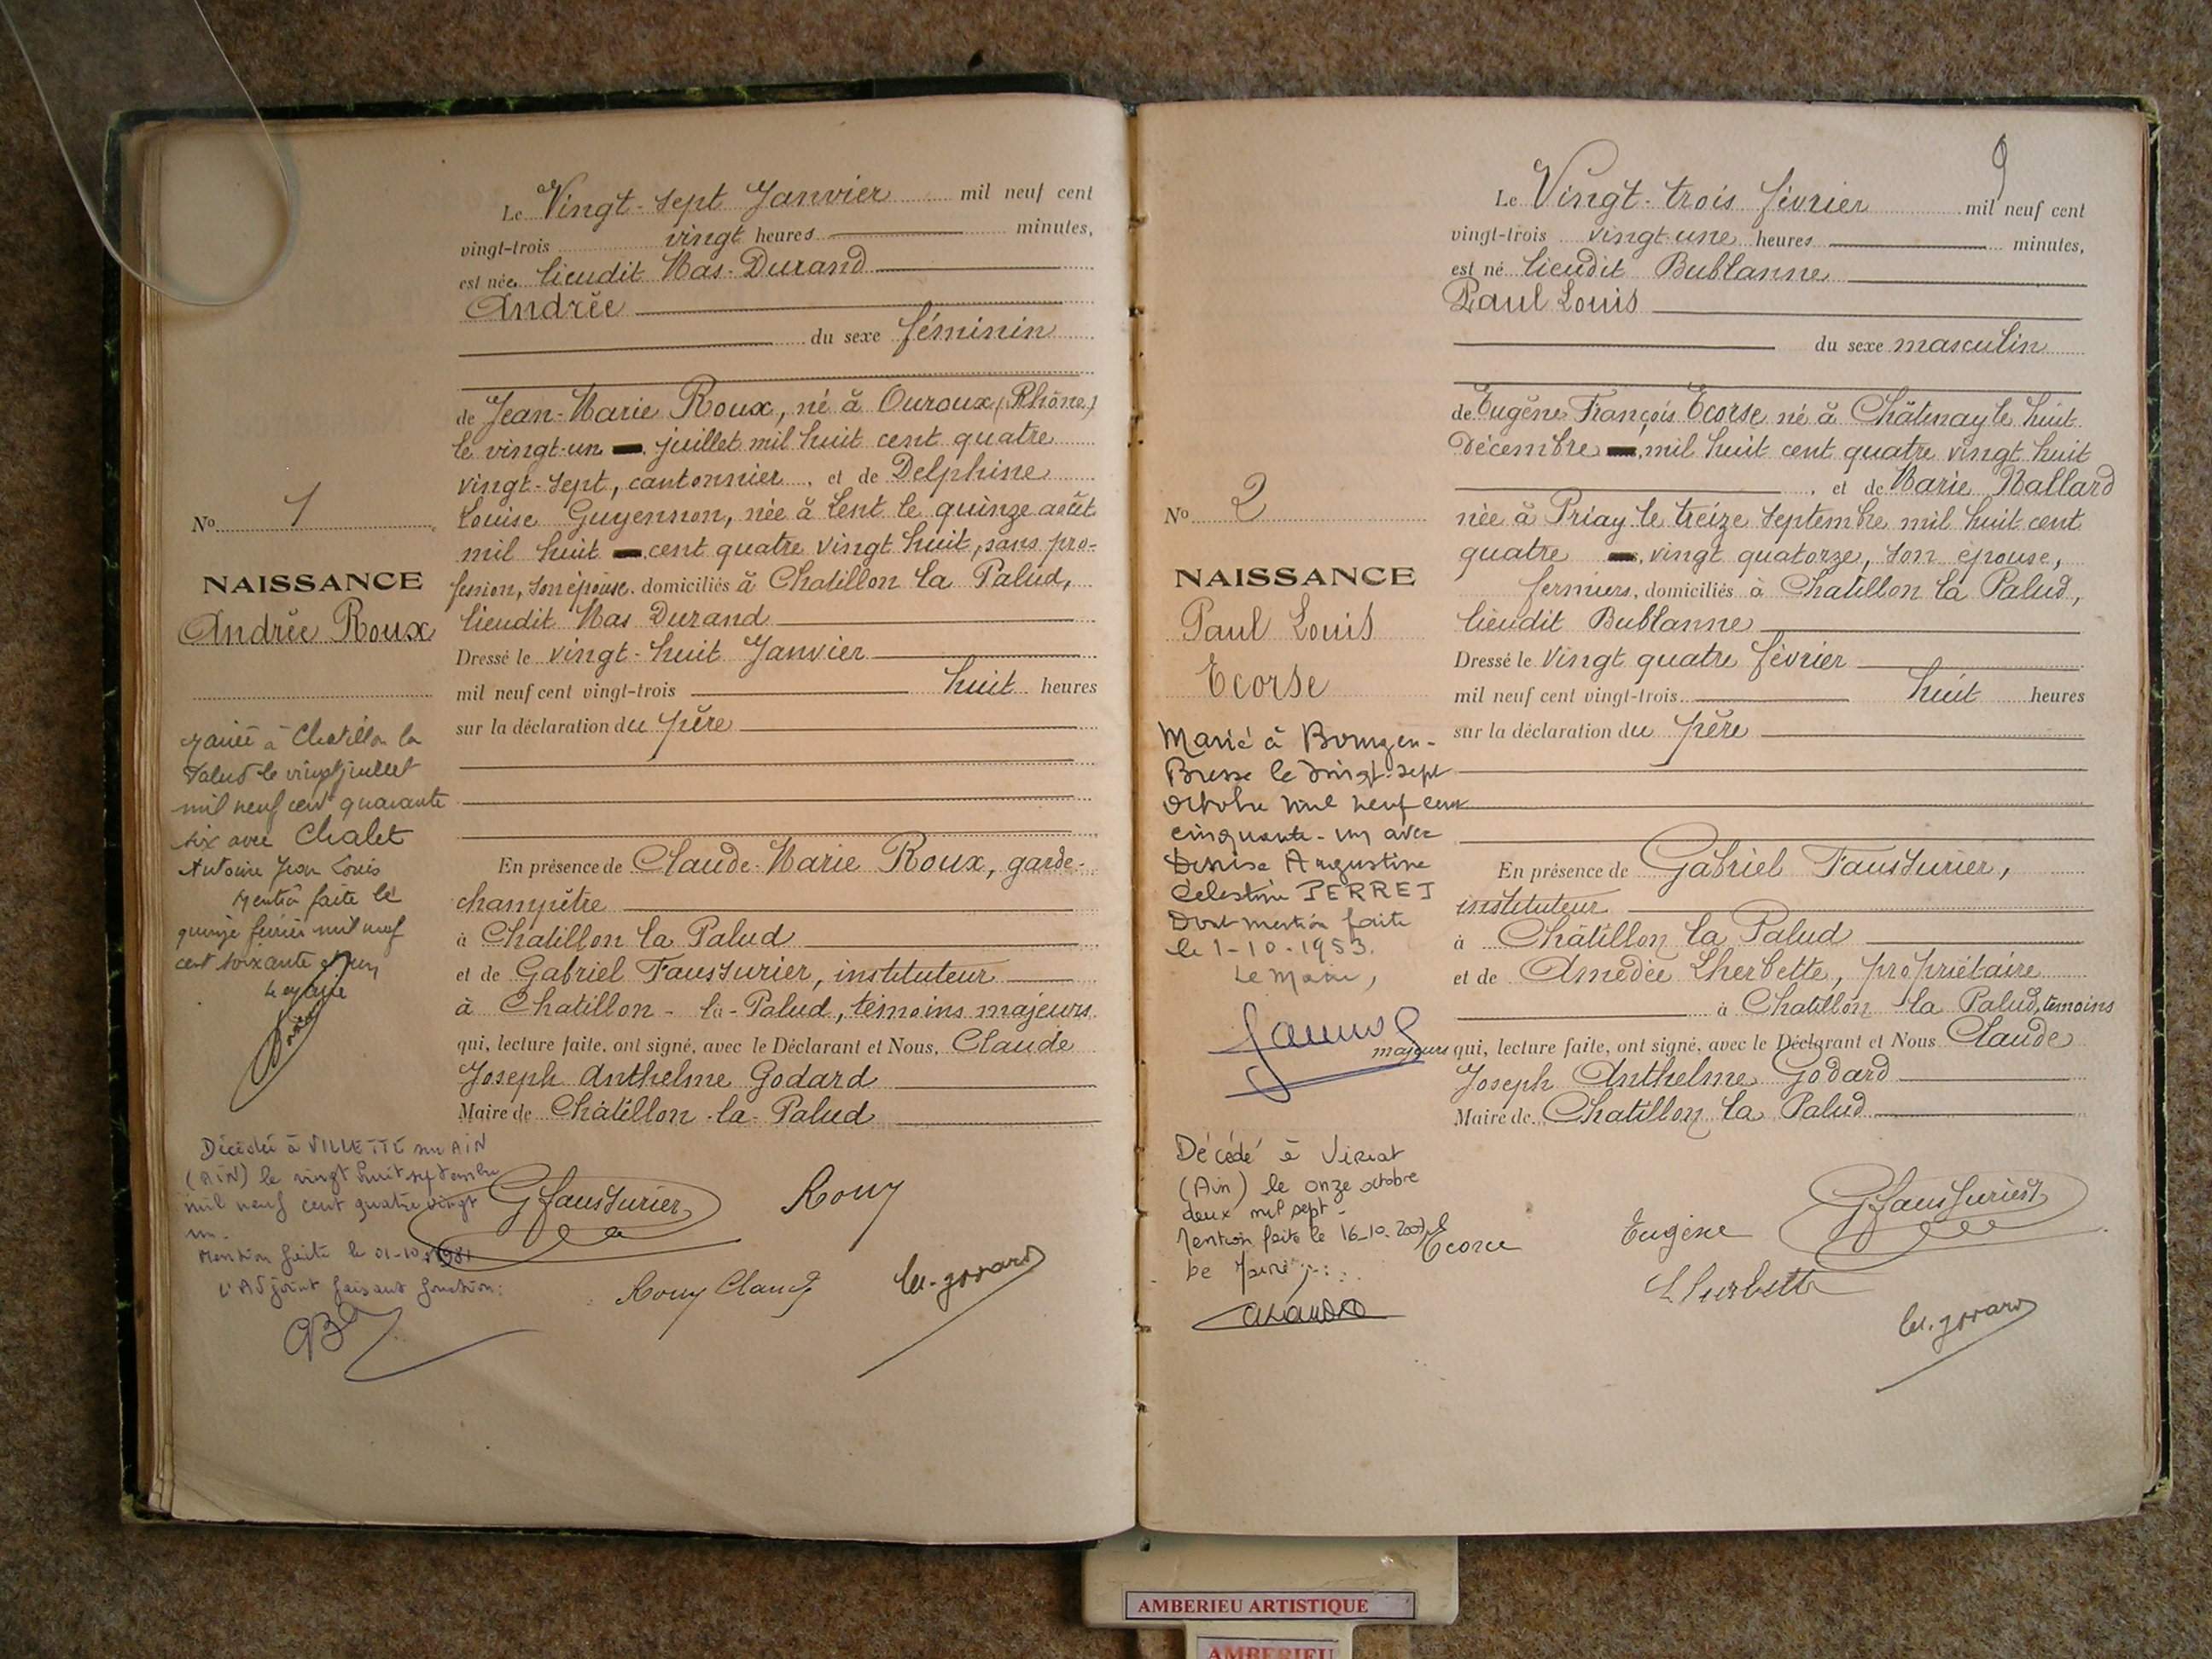 Le Vingt-sept Janvier mil neuf cent
vingt-trois vingt heures minutes,
est née lieudit Mas-Durand
Andrée
du sexe féminin
de Jean-Marie Roux, né à Ouroux (Rhône)
le vingt-un juillet mil huit cent quatre
vingt-sept, cantonnier, et de Delphine
Louise Guyennon, née à Lent le quinze août
mil huit cent quatre vingt huit, sans pro-
fession, son épouse, domiciliés à Chatillon la Palud,
lieudit Mas Durand
Dressé le vingt-huit Janvier
mil neuf cent vingt-trois huit heures
sur la déclaration du père
En présence de Claude-Marie Roux, garde-
champêtre
à Châtillon la Palud
et de Gabriel Fausturier, instituteur
à Chatillon-la-Palud, témoins majeurs
qui, lecture faite, ont signé, avec le Déclarant et Nous, Claude
Joseph Anthelme Godard
Maire de Châtillon-la-Palud
No 1
NAISSANCE
Andrée Roux
Mariée à Chatillon la
Palud le vingt juillet
mil neuf cent quarante
six avec Chalet
Antoine Jean Louis
Mention faite le
quinze février mil neuf
cent soixante et un
Le Maire
Décédée à VILLETTE sur AIN
(AIN) le vingt huit septembre
mil neuf cent quatre vingt
un.
Mention faite le 01-10-1981
L'Adjoint faisant fonction:
GFausturier
Roux
Roux Claude
Cl. Godard
9
Le Vingt-trois février mil neuf cent
vingt-trois vingt-une heures minutes,
est né lieudit Bublanne
Paul Louis
du sexe masculin
de Eugène François Ecorse né à Châtenay le huit
Décembre mil huit cent quatre vingt huit
, et de Marie Mallard
née à Priay le treize septembre mil huit cent
quatre vingt quatorze, son épouse,
fermiers, domiciliés à Chatillon la Palud,
lieudit Bublanne
Dressé le vingt quatre février
mil neuf cent vingt-trois huit heures
sur la déclaration du père
En présence de Gabriel Fausturier,
instituteur
à Châtillon la Palud
et de Amédée Lherbette, propriétaire
à Chatillon la Palud, témoins
majeurs qui, lecture faite, ont signé, avec le Déclarant et Nous Claude
Joseph Anthelme Godard
Maire de Chatillon la Palud
No 2
NAISSANCE
Paul Louis
Ecorse
Marié à Bourg en-
Bresse le vingt-sept
Octobre mil neuf cent
cinquante-un avec
Denise Augustine
Célestine PERRET
Dont mention faite
le 1-10-1953.
Le Maire,
Décédé à Viriat
(Ain) le onze octobre
deux mil sept.
Mention faite le 16-10-2007
Le Maire,
Ecorse Eugène
GFausturier
Lherbette
Cl. Godard
AMBERIEU ARTISTIQUE
AMBERIEU